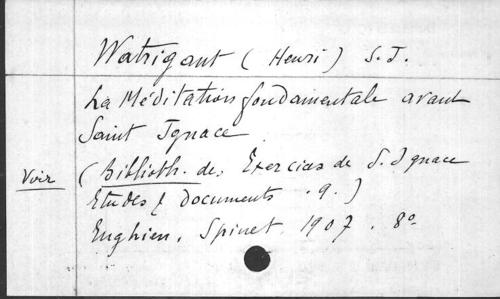 Watrigant (Henri) S.J.
La Méditation fondamentale avant
Saint Ignace
Voir (Biblioth. des Exercices de S. Ignace
Etudes & Documents . 9.)
Enghien, Spinet. 1907. 8º